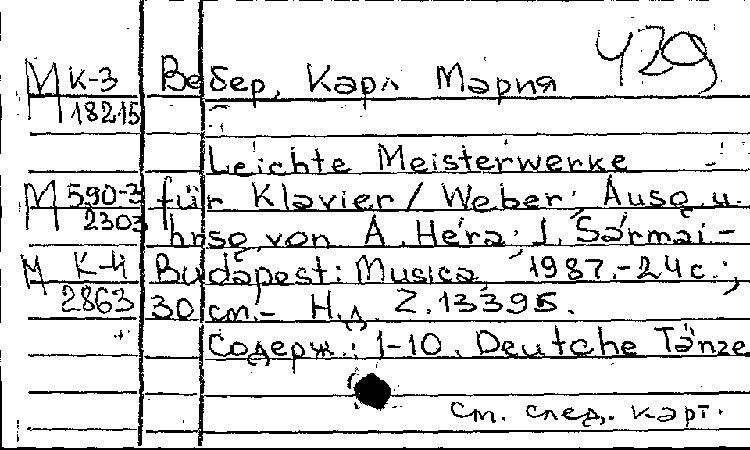 429
М К-3 Вебер, Карл Мария
18215
Leichte Meisterwerke
М 590-3 für Klavier / Weber; Ausg. u.
2303 hrsg. von A. Héra; J. Sármai.-
М К-4 Budapest: Musica, 1987.-24 с.;
2863 30 см.- Н.д. Z.13395.
Содерж.: 1-10. Deutche Tänze
См. след. карт.